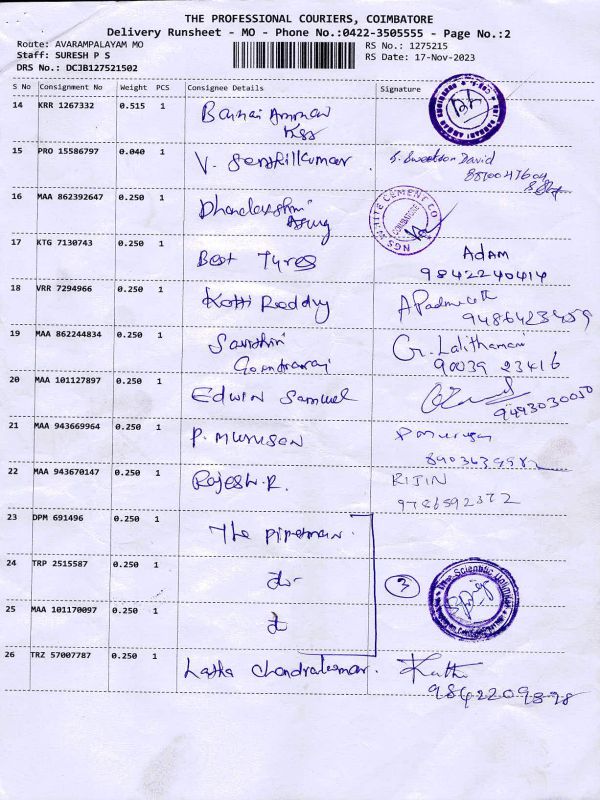 THE PROFESSIONAL COURIERS, COIMBATORE
Delivery Runsheet - MO - Phone No.:0422-3505555 - Page No.:2
Route: AVARAMPALAYAM MO
RS No.: 1275215
Staff: SURESH P S
RS Date: 17-Nov-2023
DRS No.: DCJB127521502
S No Consignment No Weight PCS Consignee Details Signature
14 KRR 1267332 0.515 1
15 PRO 15586797 0.040 1 V. Senthilkumar
16 MAA 862392647 0.250 1 Dhanalakshmi
NGS WHITE CEMENT CO
COIMBATORE
17 KTG 7130743 0.250 1 Best Tyres ADAM
9842240414
18 VRR 7294966 0.250 1 Reddy
19 MAA 862244834 0.250 1 G. Lalithamani
90039 23416
20 MAA 101127897 0.250 1 EDWIN Samuel
9493030050
21 MAA 943669964 0.250 1 P. MURUSAN P Murugan
22 MAA 943670147 0.250 1 Rajesh.R. RIJIN
9786592372
23 DPM 691496 0.250 1 The
24 TRP 2515587 0.250 1 do 3
25 MAA 101170097 0.250 1 do
26 TRZ 57007787 0.250 1 Latha Chandrakumar.